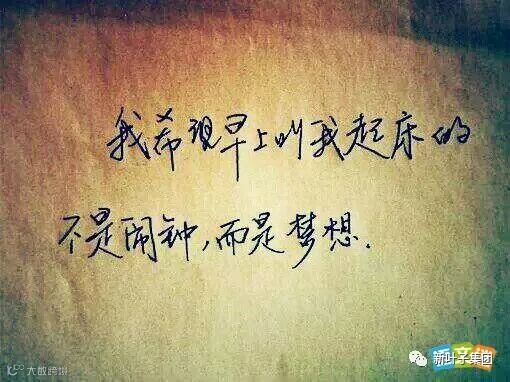 我希望早上叫我起床的
不是闹钟，而是梦想.
大数跨境
新叶子集团